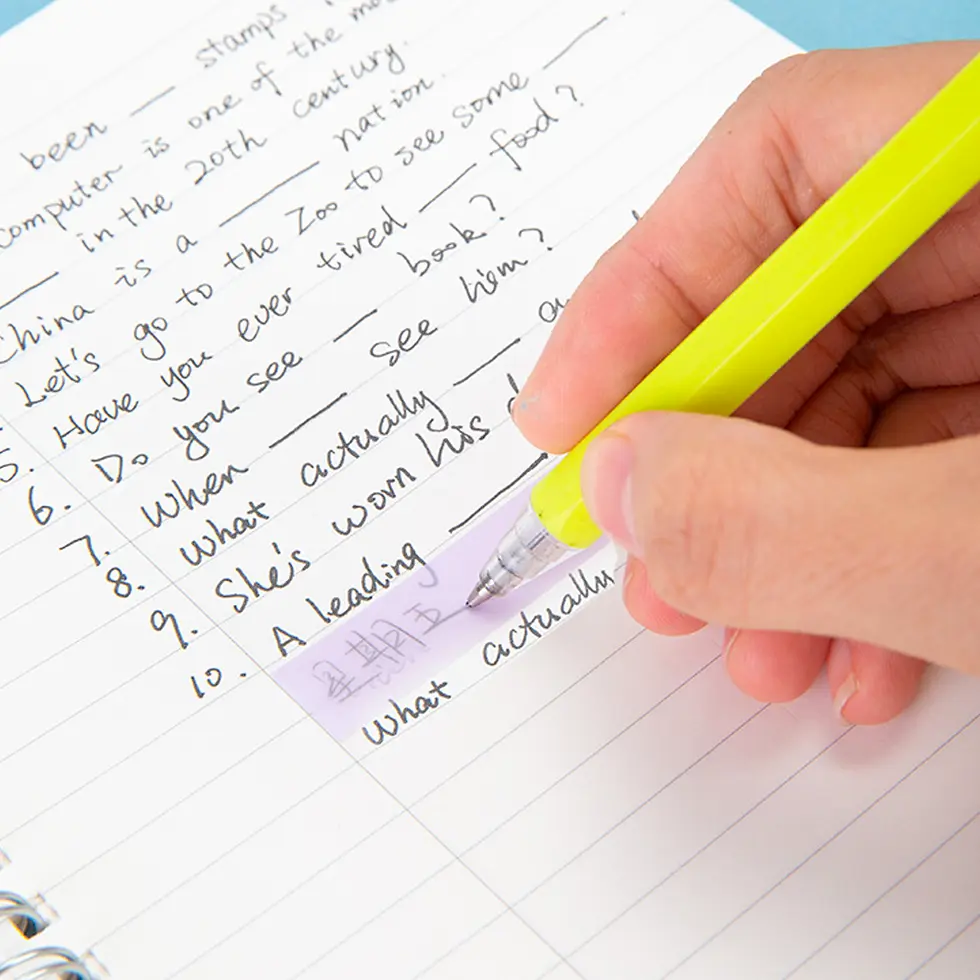 stamps
been ___
computer is one of the
___ in the 20th century.
China is a ___ nation.
Let's go to the Zoo to see some ___
5. Have you ever tired ___ food?
6. Do you see ___ book?
7. When ___ see him?
8. What actually ___
9. She's worn his
10. A leading ___
星期五
What actually